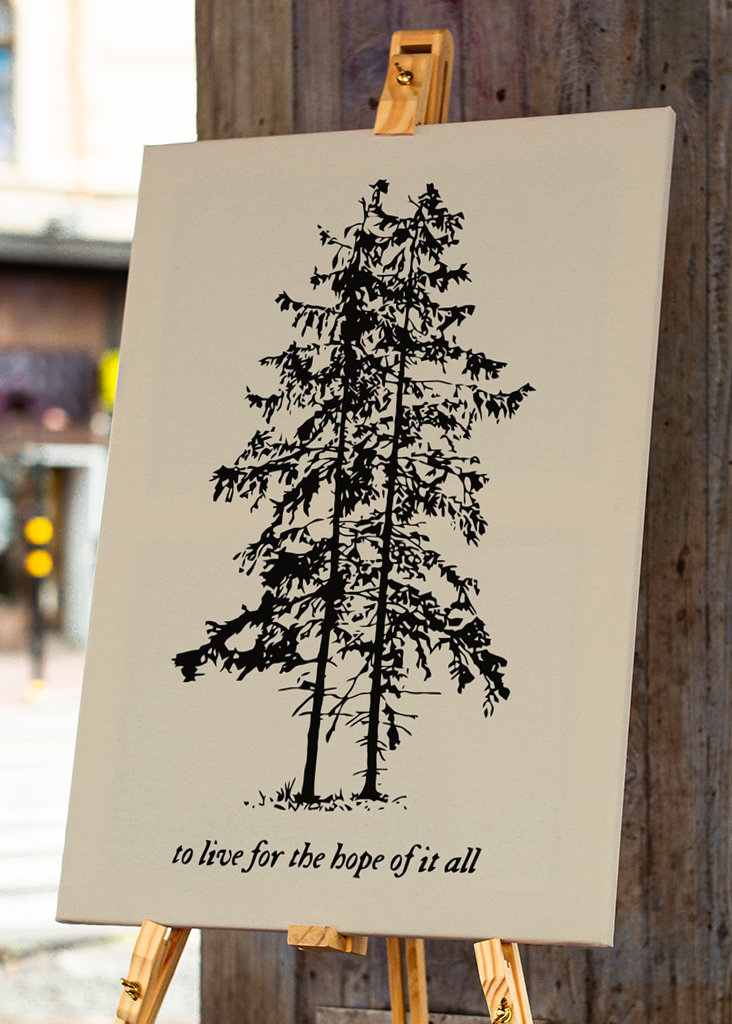 to live for the hope of it all